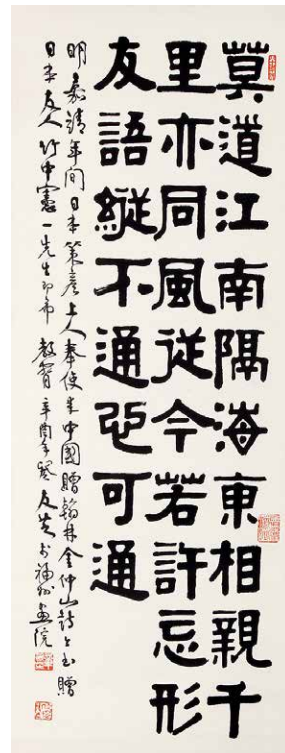 莫道江南隔海東相親千
里亦同風從今若許忘形
友語縱不通心可通
明嘉靖年间日本策彦上人奉使来中國贈翰林金仲山詩书贈
日本友人竹中憲一先生即希 教督 辛酉年友於福州画院